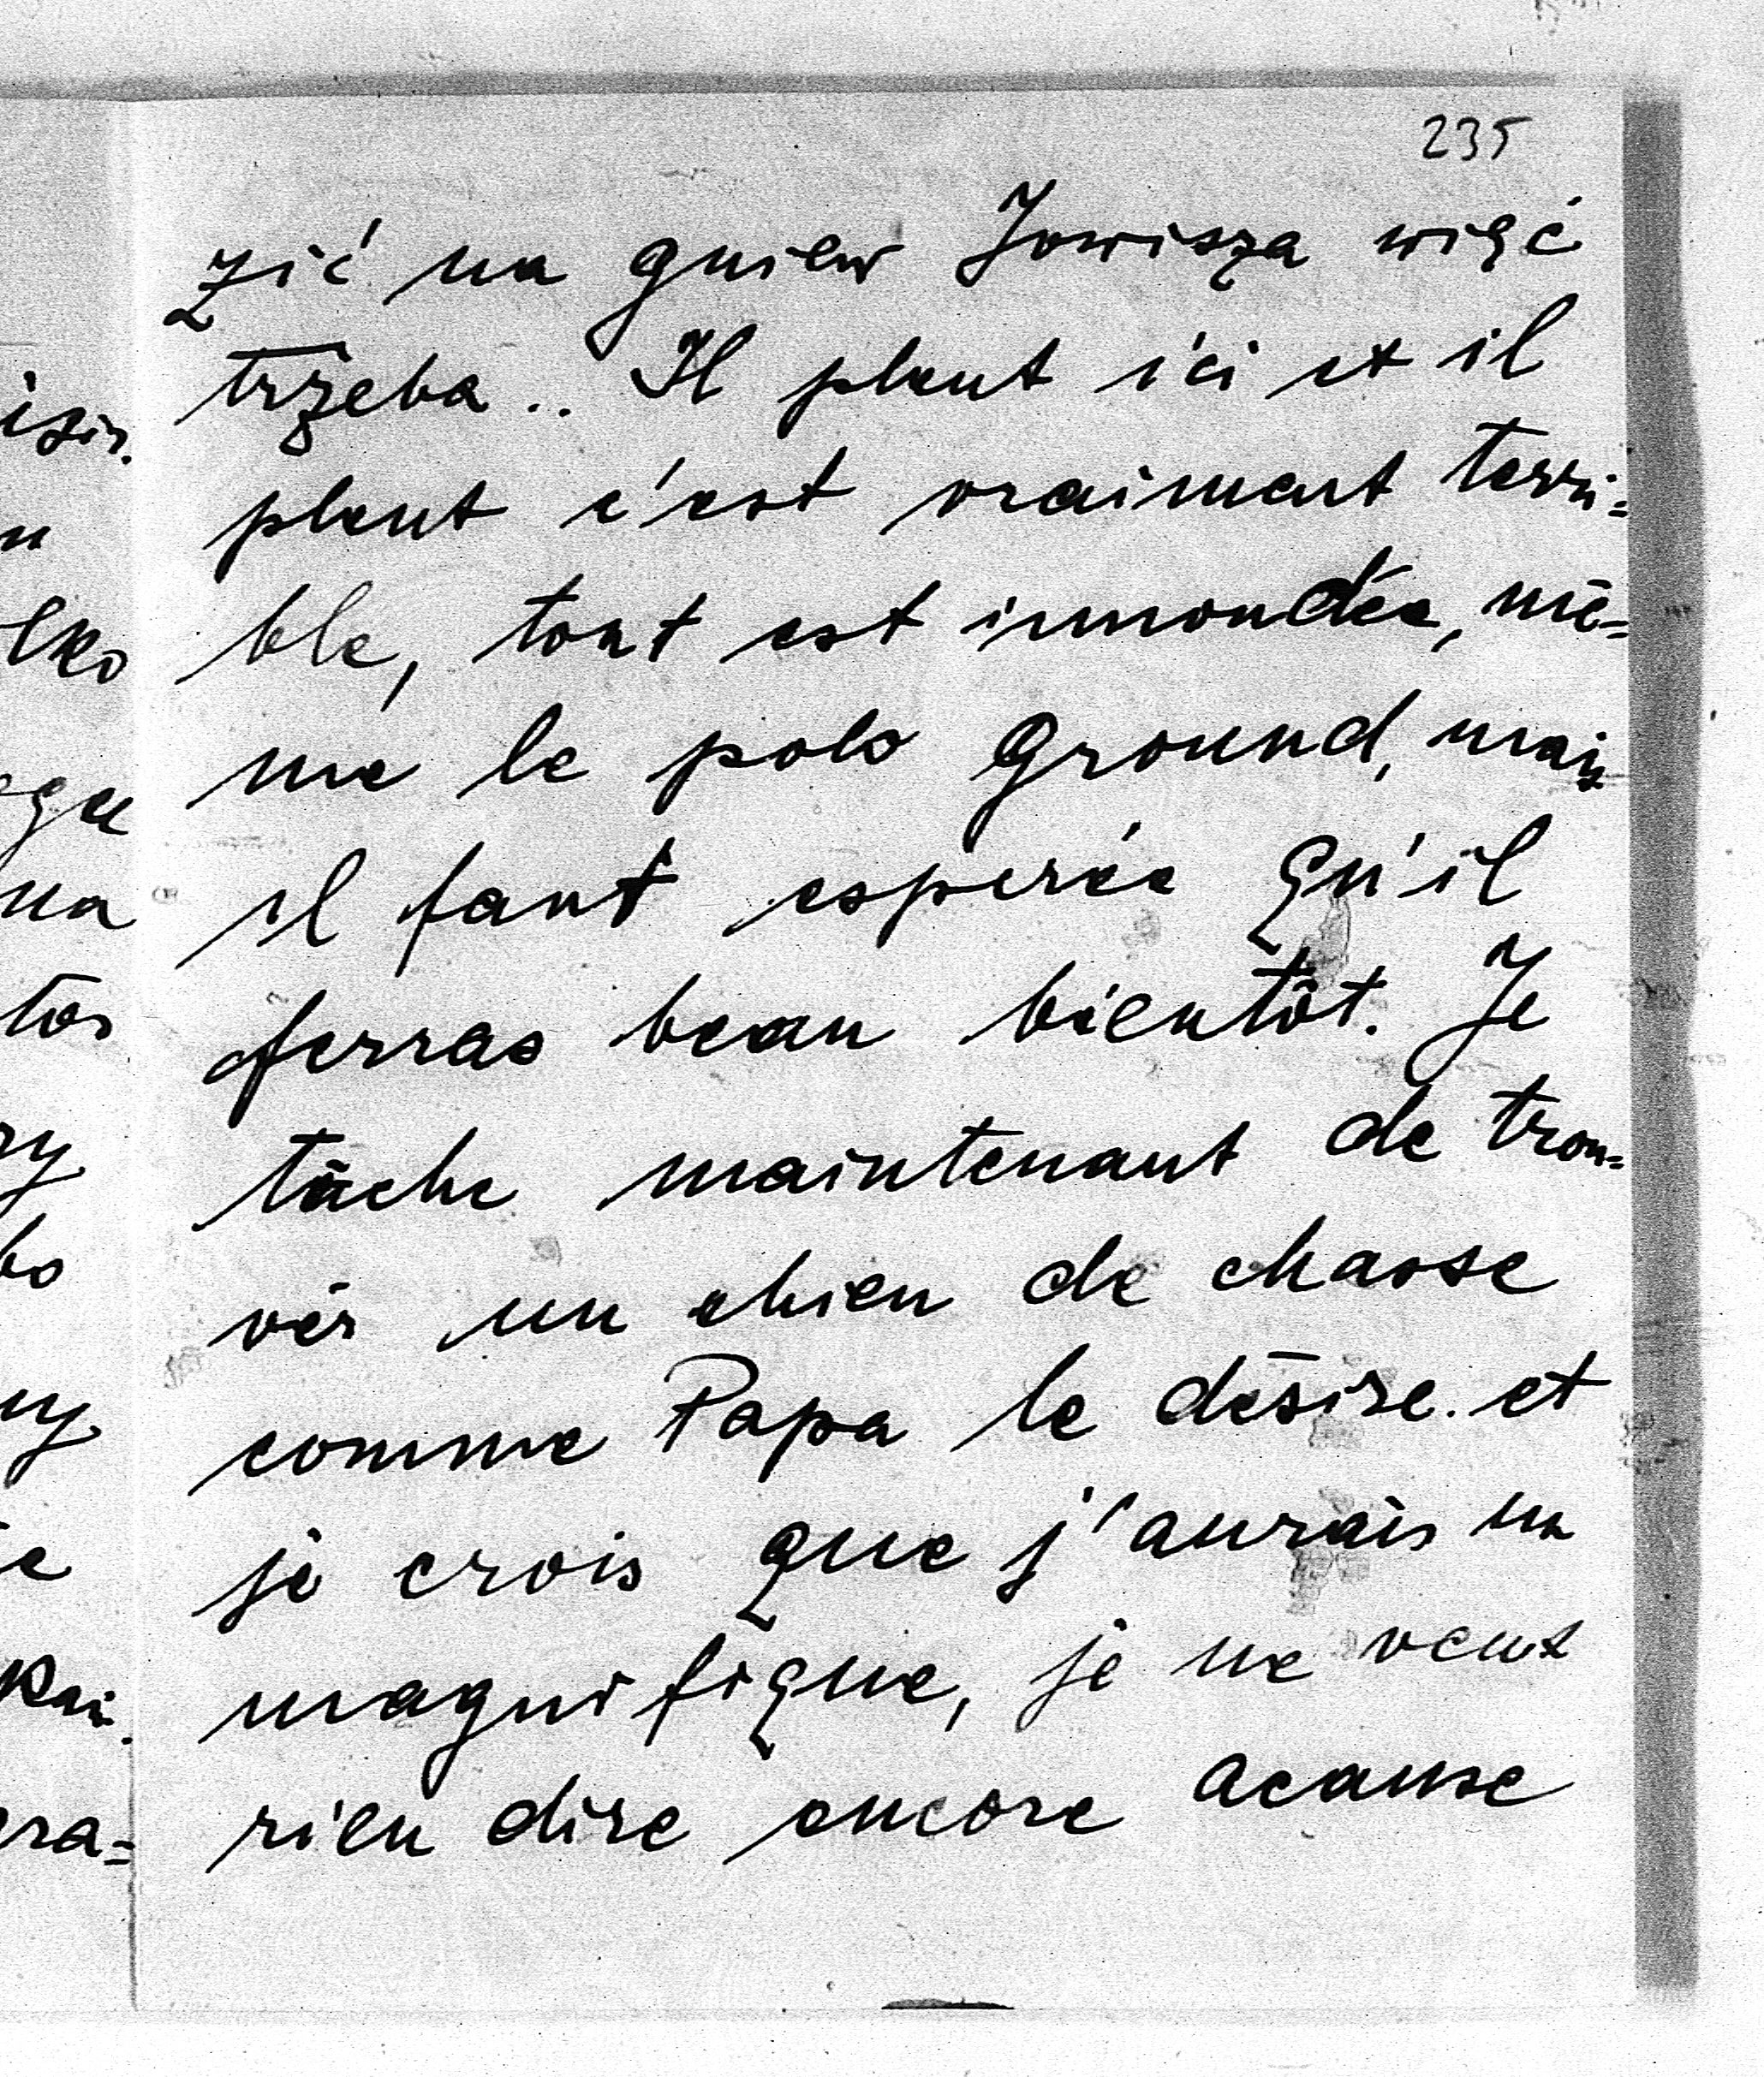 235
zić na gniew Jowisza więć
trzeba.. Il pleut ici et il
pleut c'est vraiment terri=
ble, tout est innondée, mê=
me le polo ground, mais
il faut esperée qu'il
ferras beau bientôt. Je
tâche maintenant de trou=
ver un chien de chasse
comme Papa le désire. et
je crois que j'aurais un
magnifique, je ne veut
rien dire encore acause